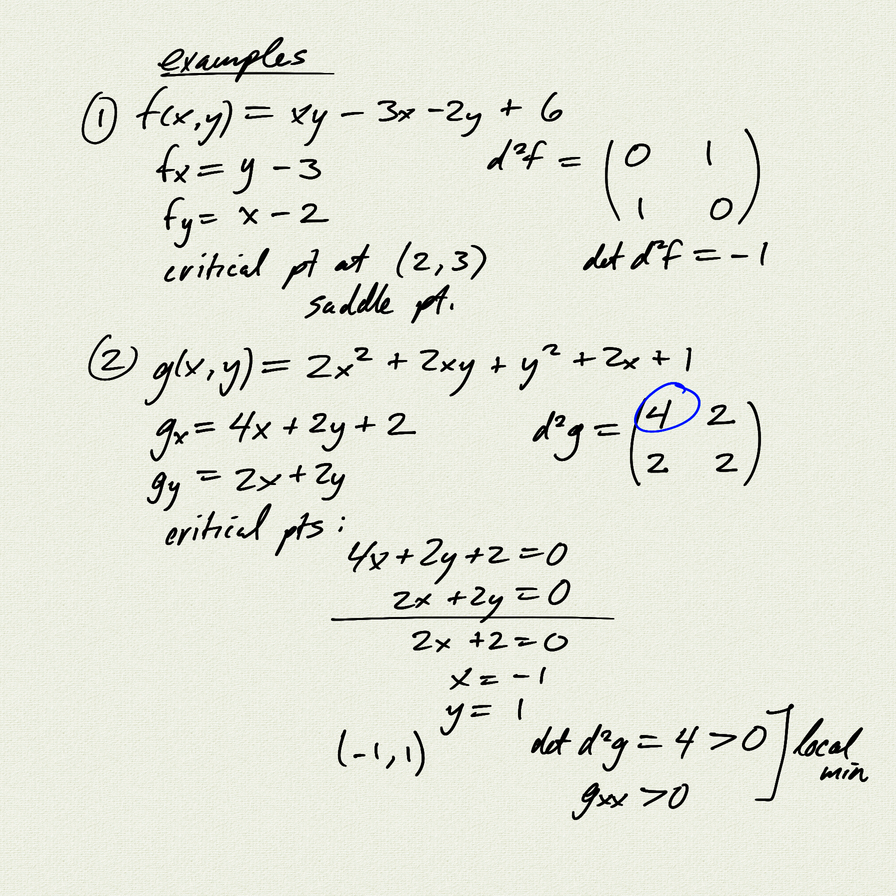 examples
① f(x,y) = xy − 3x − 2y + 6
fx = y − 3
d²f = (0 1
1 0)
fy = x − 2
critical pt at (2,3)
det d²f = −1
saddle pt.
② g(x,y) = 2x² + 2xy + y² + 2x + 1
gx = 4x + 2y + 2
d²g = (4 2
2 2)
gy = 2x + 2y
critical pts :
4x + 2y + 2 = 0
2x + 2y = 0
2x + 2 = 0
x = −1
y = 1
(−1, 1)
det d²g = 4 > 0 ] local
min
gxx > 0